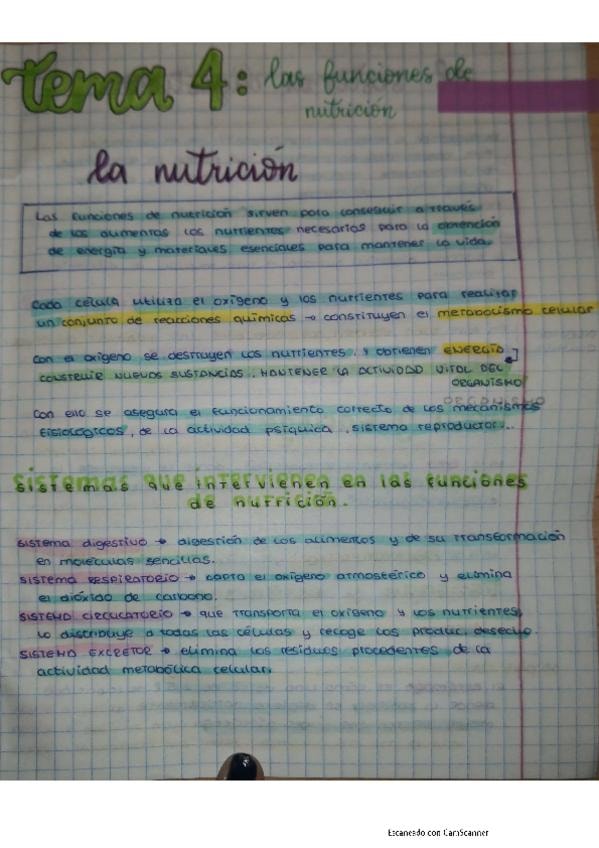 tema 4: las funciones de
nutrición
la nutrición
Las funciones de nutrición sirven para conseguir a través
de los alimentos los nutrientes necesarios para la obtención
de energía y materiales esenciales para mantener la vida.
Cada célula utiliza el oxígeno y los nutrientes para realizar
un conjunto de reacciones químicas → constituyen el metabolismo celular
Con el oxígeno se destruyen los nutrientes y obtienen ENERGÍA
CONSTRUIR NUEVAS SUSTANCIAS, MANTENER LA ACTIVIDAD VITAL DEL
ORGANISMO
ORGANISMO
Con ello se asegura el funcionamiento correcto de los mecanismos
fisiológicos, de la actividad psíquica, sistema reproductor...
sistemas que intervienen en las funciones
de nutrición.
SISTEMA digestivo → digestión de los alimentos y de su transformación
en moléculas sencillas.
SISTEMA RESPIRATORIO → capta el oxígeno atmosférico y elimina
el dióxido de carbono.
SISTEMA CIRCULATORIO → que transporta el oxígeno y los nutrientes,
lo distribuye a todas las células y recoge los produc. desecho.
SISTEMA EXCRETOR → elimina los residuos procedentes de la
actividad metabólica celular.
Escaneado con CamScanner